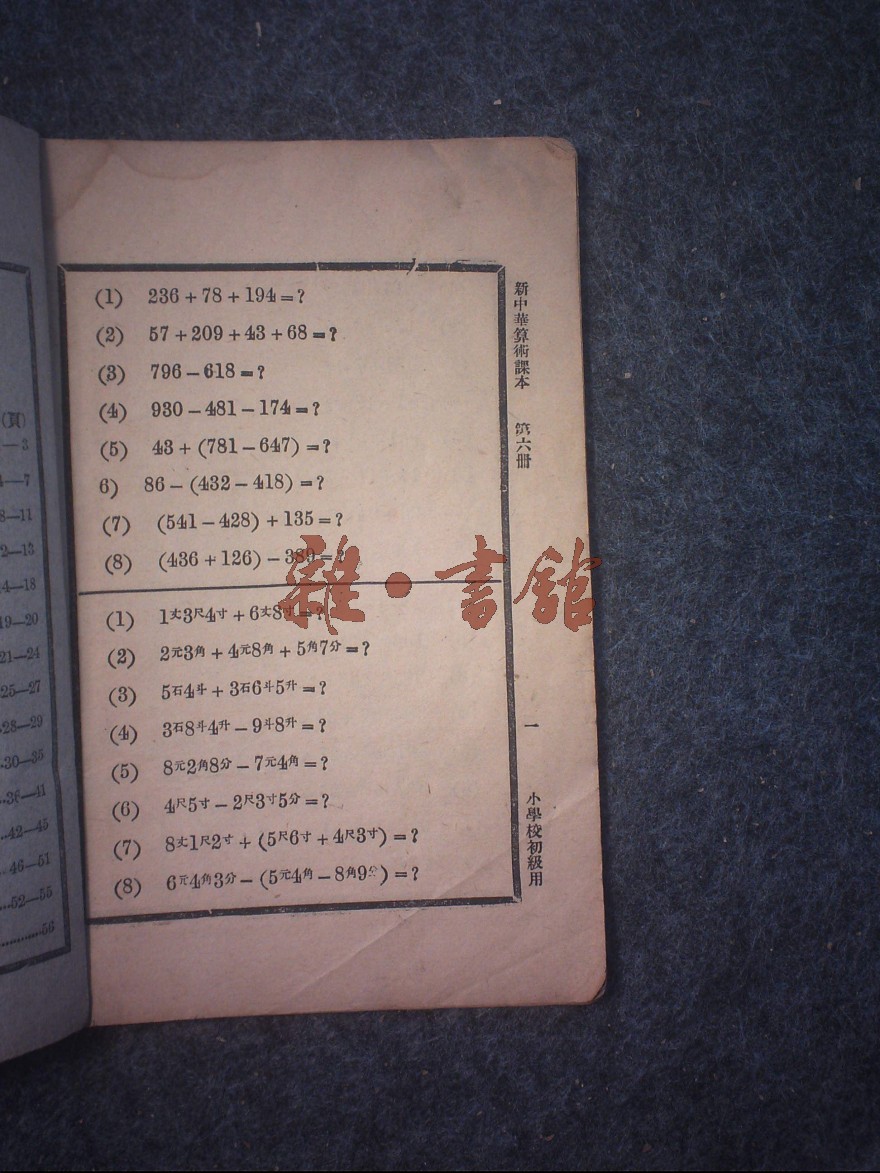 (1) 236+78+194=?
(2) 57+209+43+68=?
(3) 796-618=?
(4) 930-481-174=?
(5) 43+(781-647)=?
6) 86-(432-418)=?
(7) (541-428)+135=?
(8) (436+126)-389=?
(1) 1丈3尺4寸+6丈8寸=?
(2) 2元3角+4元8角+5角7分=?
(3) 5石4斗+3石6斗5升=?
(4) 3石8斗4升-9斗8升=?
(5) 8元2角8分-7元4角=?
(6) 4尺5寸-2尺3寸5分=?
(7) 8丈1尺2寸+(5尺6寸+4尺3寸)=?
(8) 6元4角3分-(5元4角-8角9分)=?
新中華算術課本 第六冊
一
小學校初級用
雜·書館
(頁)
—3
—7
8—11
2—13
14—18
19—20
21—24
25—27
28—29
30—35
36—41
42—45
46—51
52—55
56